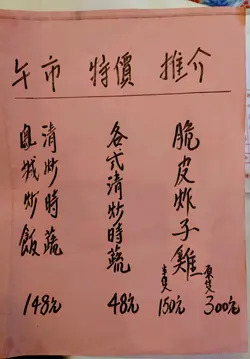 午市 特價 推介
脆皮炸子雞
300元
半隻
150元
各式清炒時蔬
48元
清炒時蔬
鳳城炒飯
148元